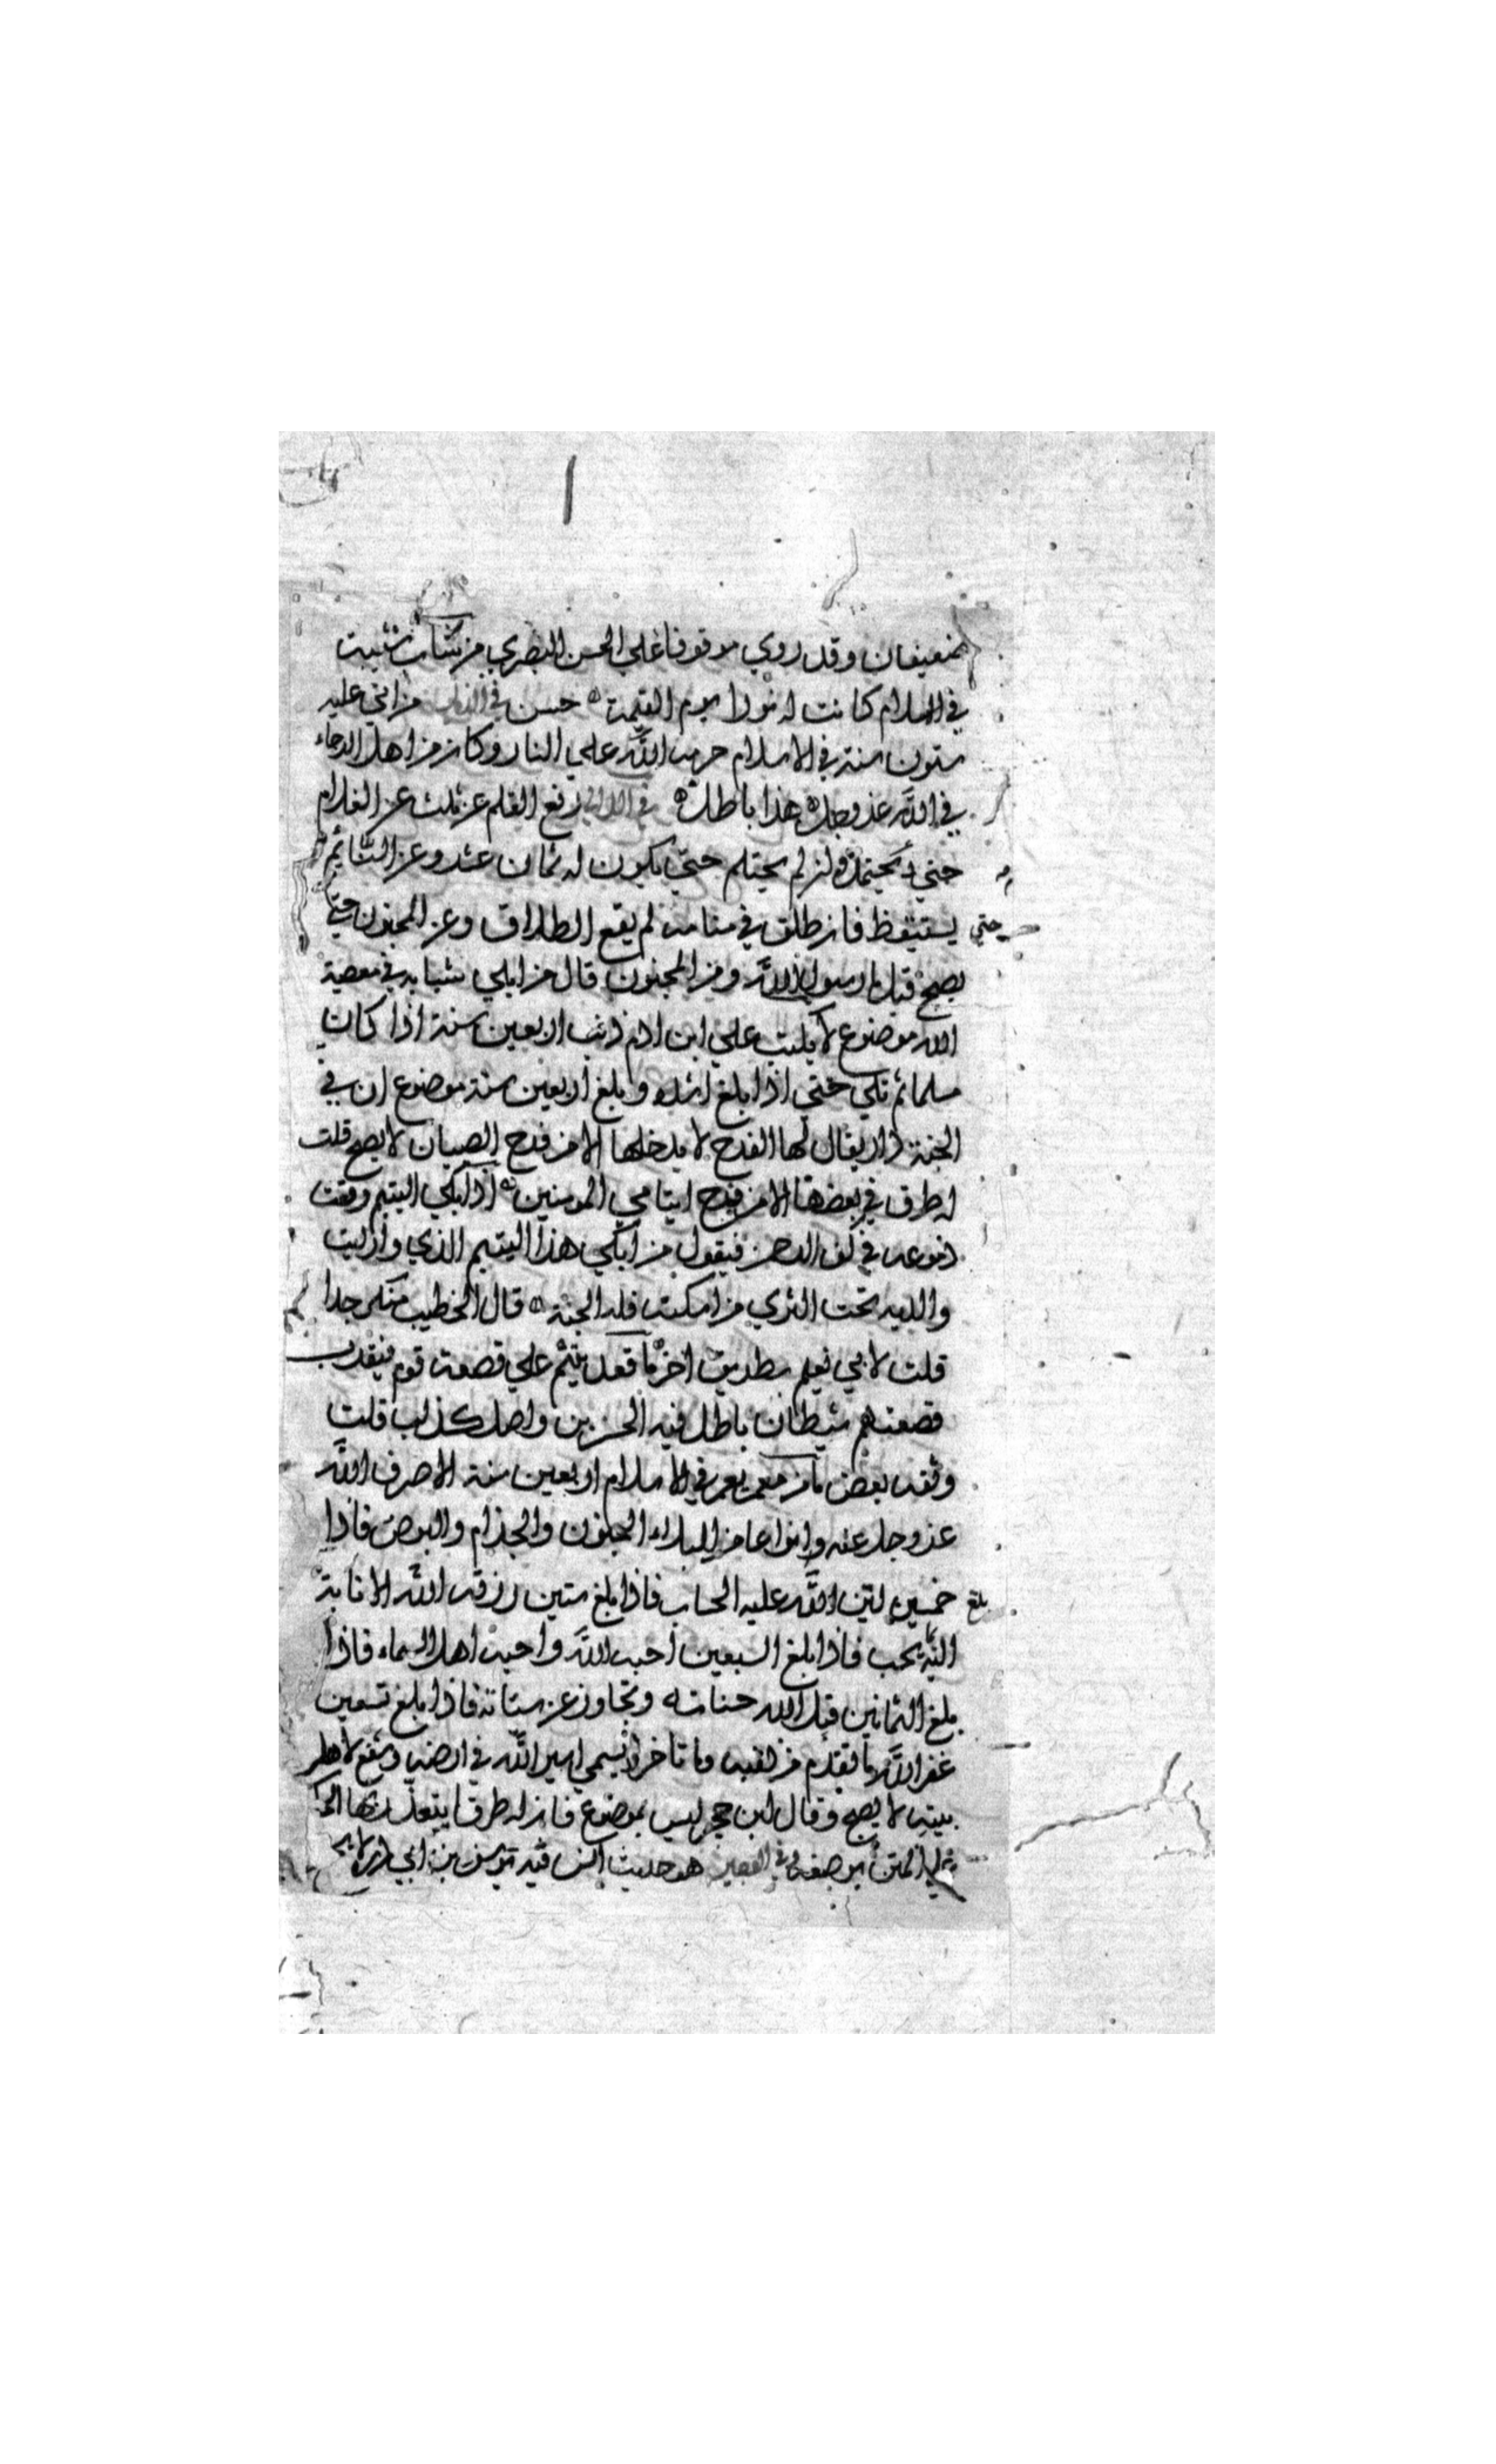 ضعيفان وقد روي موقوفا علي الحسن البصري من شاب شيبة
في الاسلام كانت له نورا يوم القيمة حسن في الذيل من اتي عليه
ستون سنة في الاسلام حرمه الله علي النار وكان من اهل الرجاء
في الله عز وجل هذا باطل في اللالي رفع القلم عن ثلث عن الغلام
حتي يحتلم فان لم يحتلم حتي يكون له ثمان عشر وعن النائم
حتي يستيقظ فان طلق في منامه لم يقع الطلاق وعن المجنون حتي
يصح قيل يا رسول الله ومن المجنون قال من ابلي شبابه في معصية
الله موضوع لا يكتب علي ابن ادم ذنب اربعين سنة اذا كان
مسلما ثم تلي حتي اذا بلغ اشده وبلغ اربعين سنة موضوع ان في
الجنة دار يقال لها الفرح لا يدخلها الا من فرح الصبيان لا يصح قلت
له طرق في بعضها الا من فرح ايتامي المومنين اذا بكي اليتيم وقعت
دموعه في كف الرحمن فيقول من ابكي هذا اليتيم الذي واريت
والديه تحت الثري من اسكته فله الجنة قال الخطيب منكر جدا
قلت لابي نعيم بطريق اخر ما قعد يتيم علي قصعة قوم فيقرب
قصعتهم شيطان باطل فيه الحسن بن واصل كذاب قلت
وثقه بعض ما من معمر يعمر في الاسلام اربعين سنة الا صرف الله
عز وجل عنه انواعا من البلاء الجنون والجذام والبرص فاذا
بلغ خمسين لين الله عليه الحساب فاذا بلغ ستين رزقه الله الانابة
اليه بما يحب فاذا بلغ السبعين احبه الله واحبه اهل السماء فاذا
بلغ الثمانين قبل الله حسناته وتجاوز عن سيئاته فاذا بلغ تسعين
غفر الله ما تقدم من ذنبه وما تاخر وسمي اسير الله في ارضه وشفع لاهل
بيته لا يصح وقال ابن حجر ليس بموضوع فان له طرقا يتعذر بها الحكم
علي المتن بوضعه وفي الوجيز هو حديث انس فيه يوسف بن ابي